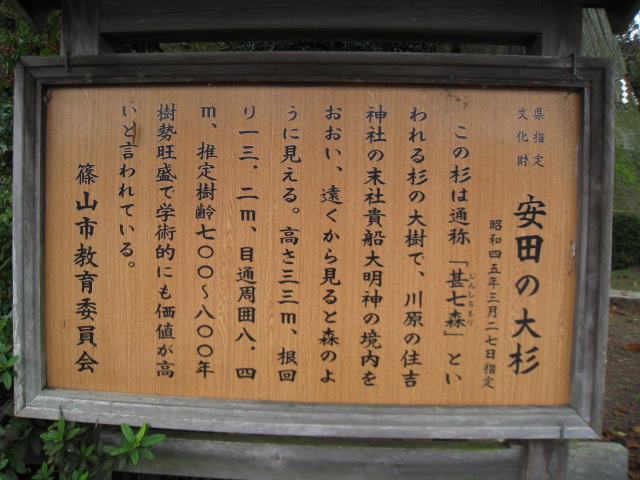 県指定
文化財
安田の大杉
昭和四五年三月二七日指定
この杉は通称「甚七森」とい
じんしちもり
われる杉の大樹で、川原の住吉
神社の末社貴船大明神の境内を
おおい、遠くから見ると森のよ
うに見える。高さ三三m、根回
り一三．二m、目通周囲八．四
m、推定樹齢七〇〇～八〇〇年
樹勢旺盛で学術的にも価値が高
いと言われている。
篠山市教育委員会